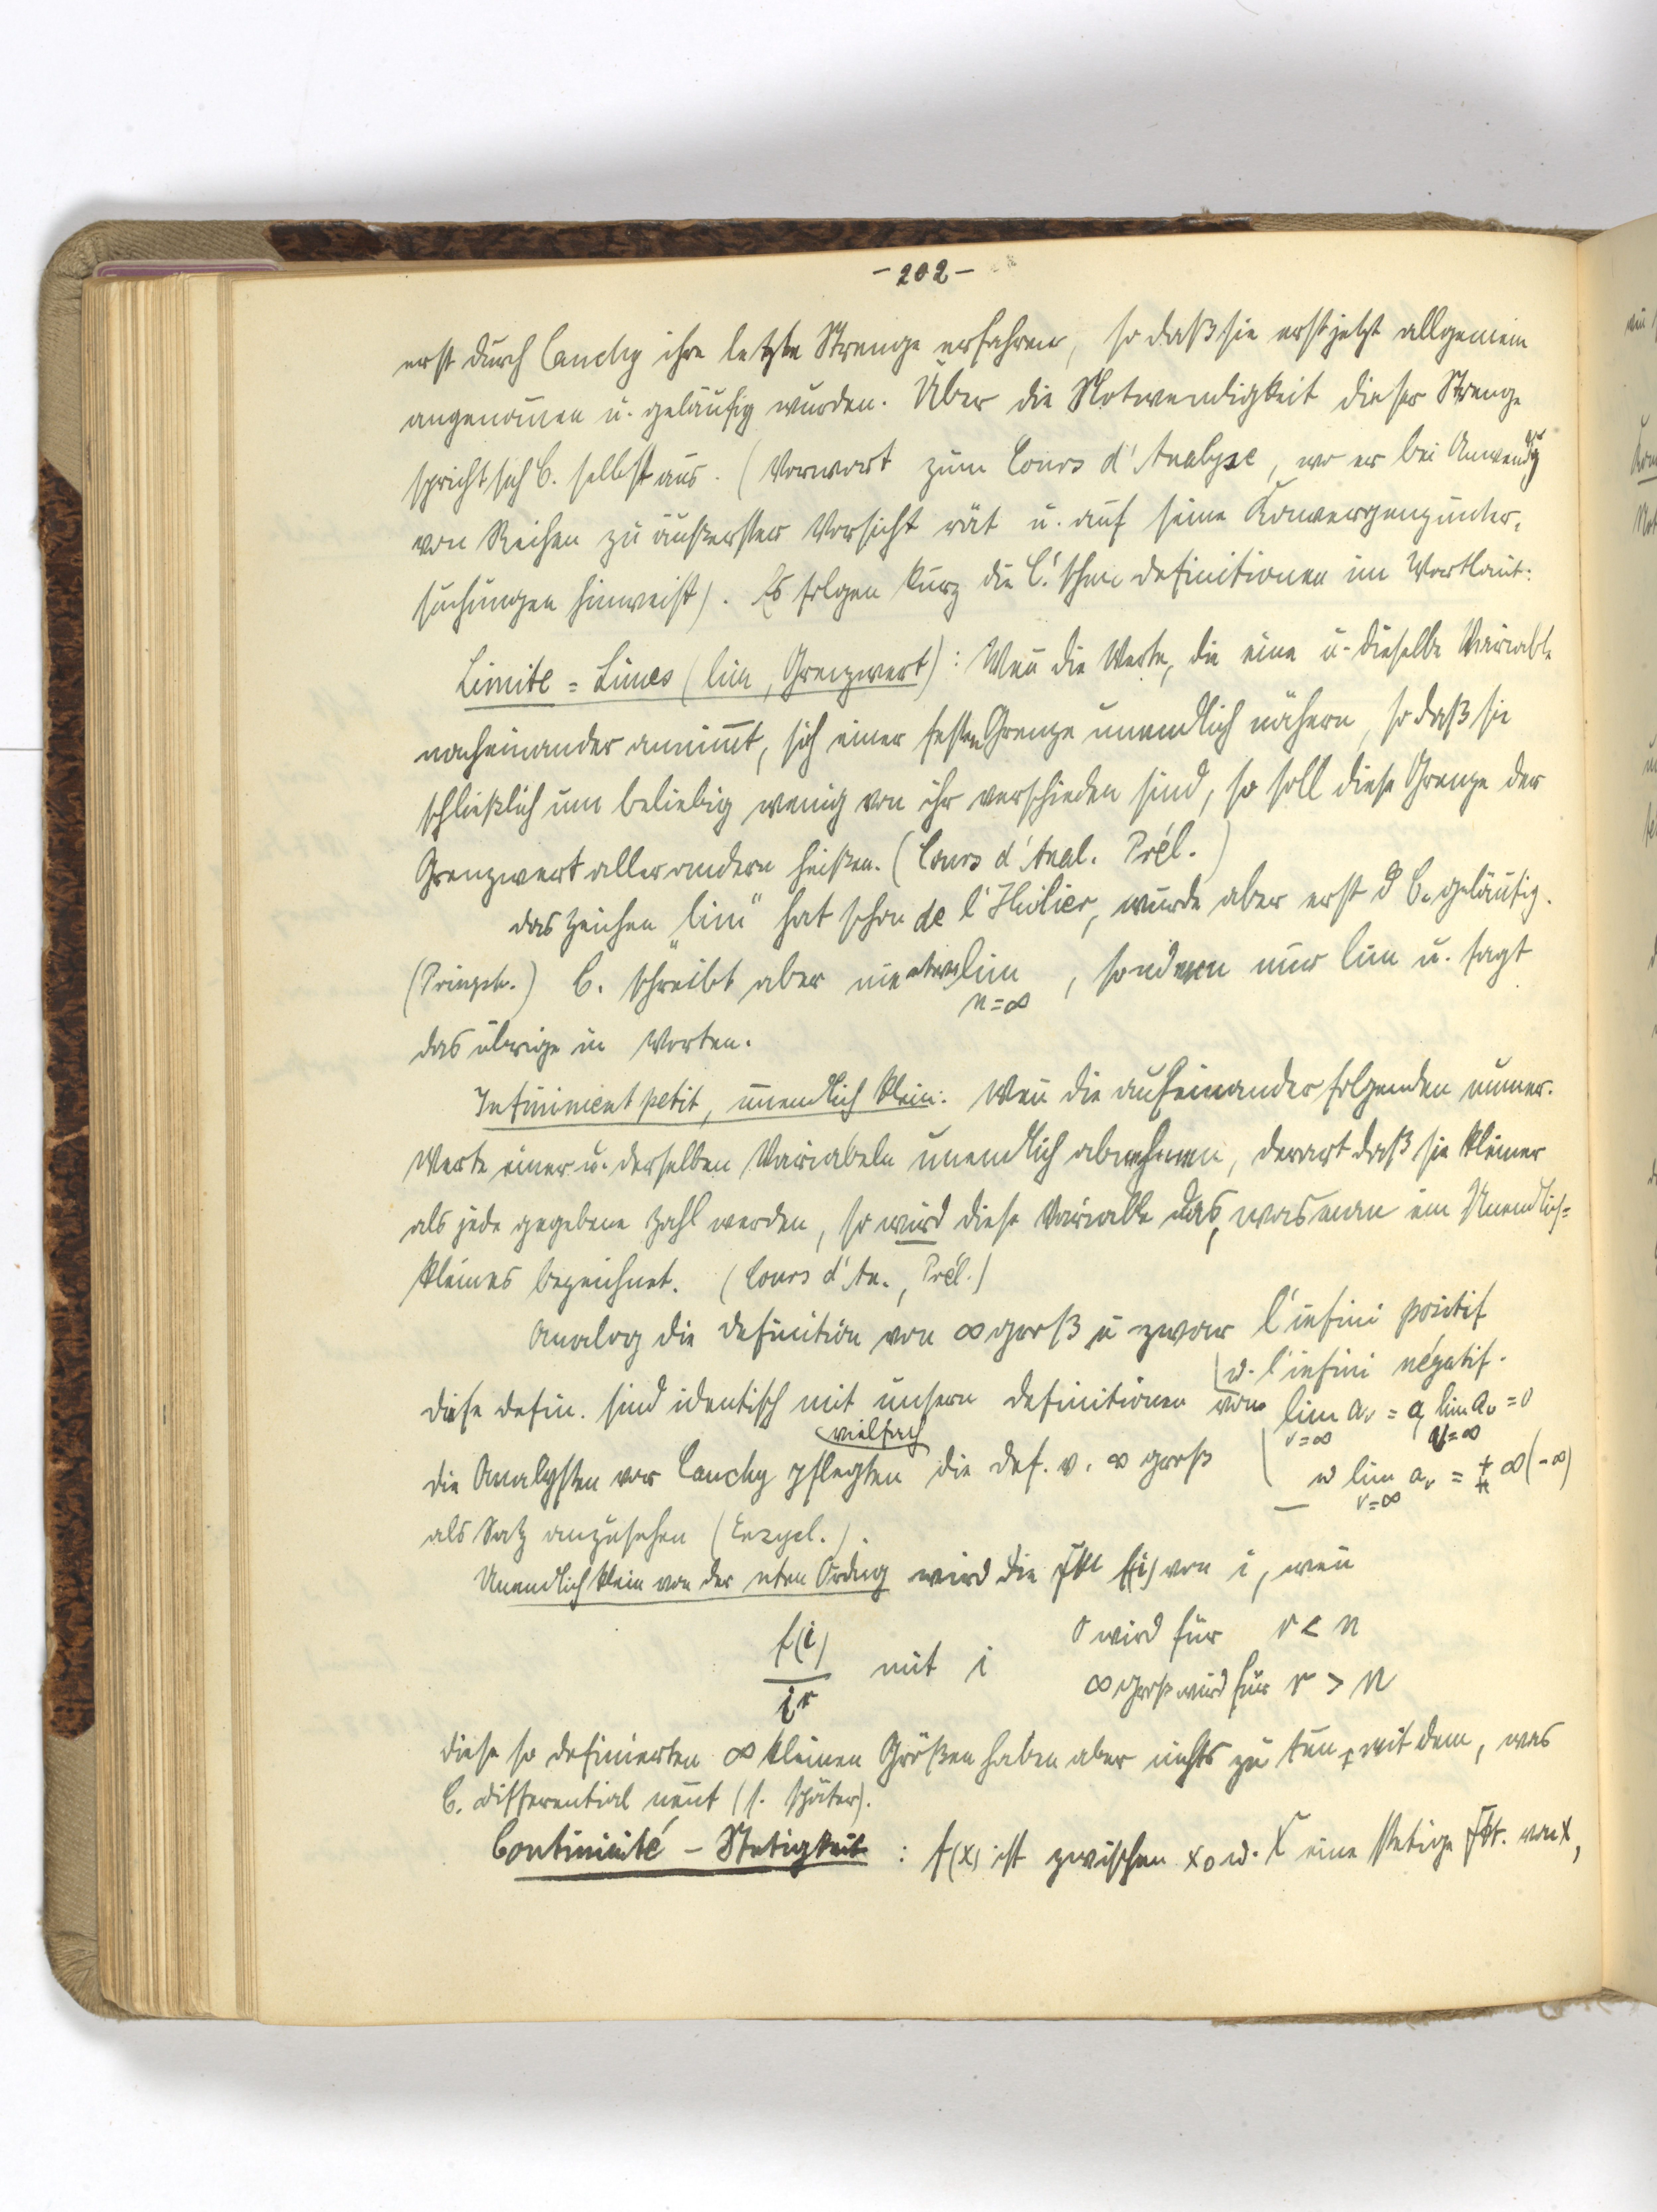 - 202 -
erst durch Cauchy ihre letzte Strenge erfahren, so daß sie erst jetzt allgemein
angenom̄en u. geläufig wurden. Über die Notwendigkeit dieser Strenge
spricht sich C. selbst aus. (Vorwort zum Cours d'Analyse, wo er bei Anwendg
von Reihen zu äußerster Vorsicht rät u. auf seine Konvergenzunter-
suchungen hinweist). Es folgen kurz die C.'schen Definitionen im Wortlaut:
Limite = Limes (lim, Grenzwert): Wen̄ die Werte, die eine u. dieselbe Variable
nacheinander annim̄t, sich einer festen Grenze unendlich nähern, so daß sie
schließlich um beliebig wenig von ihr verschieden sind, so soll diese Grenze der
Grenzwert aller andern heißen. (Cours d'Anal. Prél.)
Das Zeichen „lim" hat schon de l'Huilier, wurde aber erst d C. geläufig.
(Pringsh.) C. schreibt aber nie etwa lim n=∞, sondern nur lim u. sagt
das übrige in Worten.
Infiniment petit, unendlich klein: Wen̄ die aufeinander folgenden numer.
Werte einer u. derselben Variabeln unendlich abnehmen, derart daß sie kleiner
als jede gegebene Zahl werden, so wird diese Variable das, was man ein Unendlich-
kleines bezeichnet. (Cours d'An., Prél.)
Analog die Definition von ∞ groß u zwar l'infini positif
u. l'infini négatif.
Diese Defin. sind identisch mit unsern Definitionen von lim aν = a, lim aν = 0
ν=∞ ν=∞
Die Analysten vor Cauchy vielfach pflegten die Def. v. ∞ groß u lim aν = + ∞ (-∞)
ν=∞
als Satz anzusehen (Enzycl.).
Unendlich klein von der nten Ordng wird die Fkt f(i) von i, wen̄
f(i)/i^r mit i 0 wird für r < n
∞ groß wird für r > n
Diese so definierten ∞ kleinen Größen haben aber nichts zu tun mit dem, was
C. Differential nen̄t (s. später).
Continuité – Stetigkeit: f(x) ist zwischen x₀ u. X eine stetige Fkt. von x,